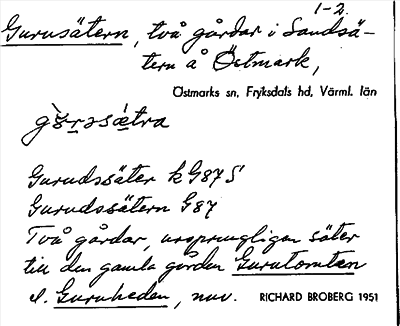 1-2.
Gurusätern, två gårdar i Sandsä-
tern å Östmark,
Östmarks sn, Fryksdals hd, Värml. län
Gurudssäter k G87 S
Gurudssätern G87
Två gårdar, ursprungligen säter
till den gamla gården Gurutomten
el. Guruheden, nuv.
RICHARD BROBERG 1951